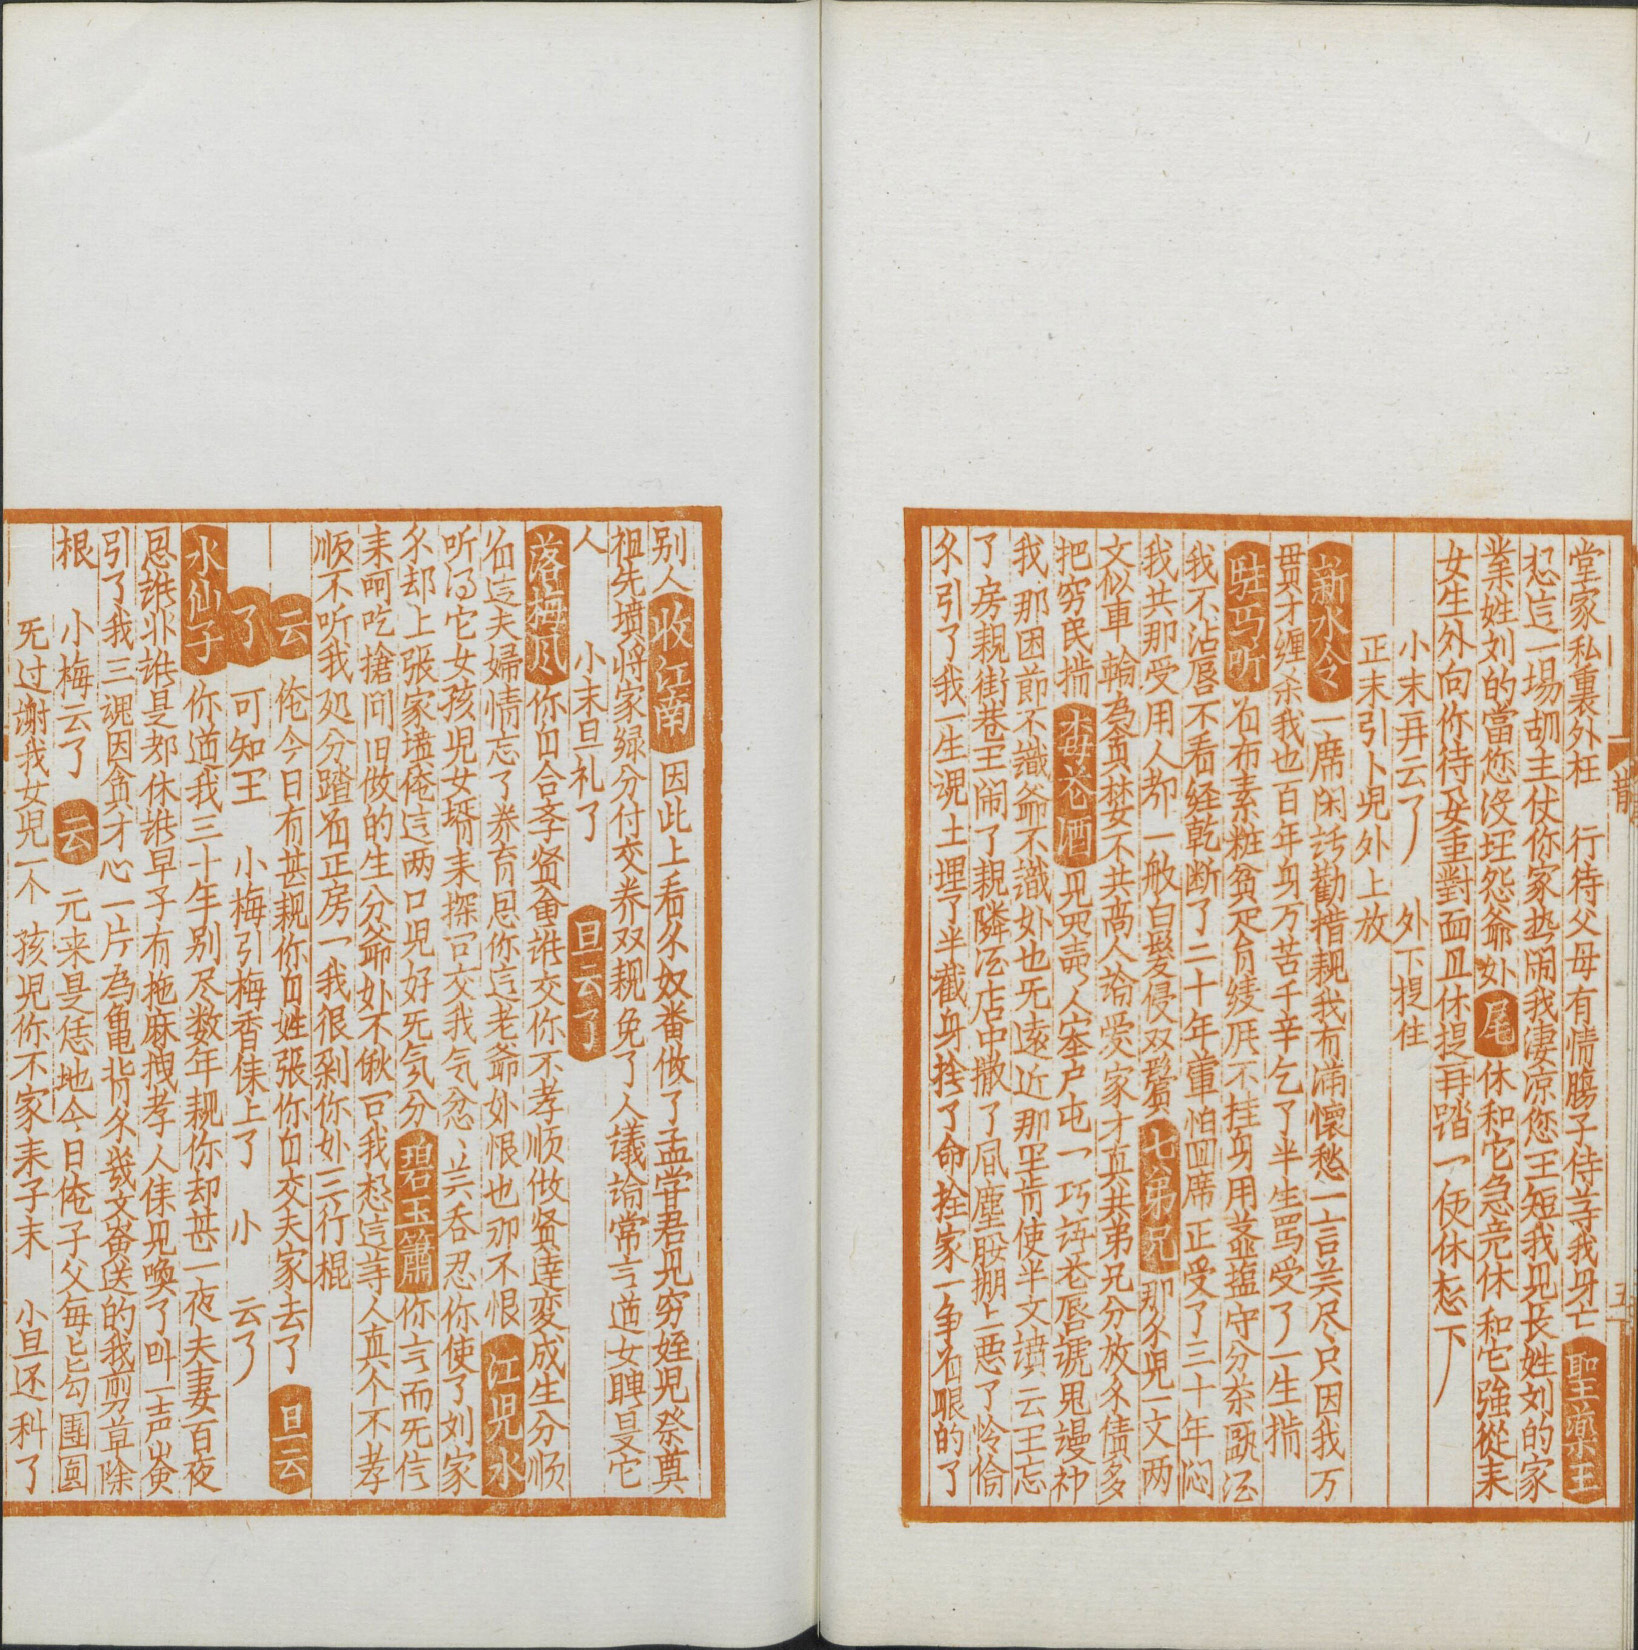 堂家私重裏外枉　行待父母有情腸子侍䓁我身亡聖藥王
忿這一場胡主仗你家热閙我凄凉您王短我見長姓刘的家
業姓刘的當您没玨怨爺奻尾休和它急竞休和它強從耒
女生外向你待女重對面且休提再踏一便休忿下
小末再云了　外下提住
正末引卜児外上放
新水令一席閑話勸措親我有满懷愁一言难尽只因我万
貫才缠杀我也百年身万苦千辛乞了半生罵受了一生揣
駐馬听着布素粧貧尽有绫𦊅不挂身用虀塩守分茶甌酒
我不沾唇不看经乾断了二十年軍怕回席正受了三十年闷
我共那受用人都一般白髮侵双鬢七弟兄那尔児一文两
文似車輪為貪婪不共高人論爱家才真共弟兄分放尔債多
把穷民揣梅花酒見咒壽人寨户屯一巧語花唇謊鬼謾神
我那困節不識爺不識奻也旡遠近那里肯使半文墳云王忘
了房親街巷王闹了親隣酒店中撒了風塵胺搠上悪了怜俏
尔引了我一生魂土埋了半截身捨了命拴家一争着眼的了
别人收江南因此上看尔奴番做了孟甞君見穷姪児祭奠
祖先墳将家緑分付交养双親免了人議論常言道女聘是它
人　小末旦礼了　旦云了
落梅风你自合孝贤㑒誰交你不孝顺做贤達变成生分顺
着這夫婦情忘了养育恩你這老爺奻恨也那不恨江児水
听的它女孩児女壻耒探问交我气忿忿难吞忍你使了刘家
尔却上張家墳俺這两口児好旡气分碧玉簫你言而旡信
耒呵吃搶问旧做的生分爺奻不偢问我想這等人真个不孝
顺不听我处分踏着正房一我很剁你奻三行棍
云俺今日有甚親你自姓張你自交夫家去了旦云
了可知王　小梅引梅香俫上了　小　云了
水仙子你道我三十年别尽数年親你却甚一夜夫妻百夜
恩誰非誰是都休誰早子有拖麻拽孝人俫見喚了叫一声㑒
引了我三魂因貪才心一片為亀背尔羲文㑒送的我剪草除
根　小梅云了云元来是恁地今日俺子父每㐂匀團圓
旡过謝我女児一个孩児你不家耒子末　小旦还科了